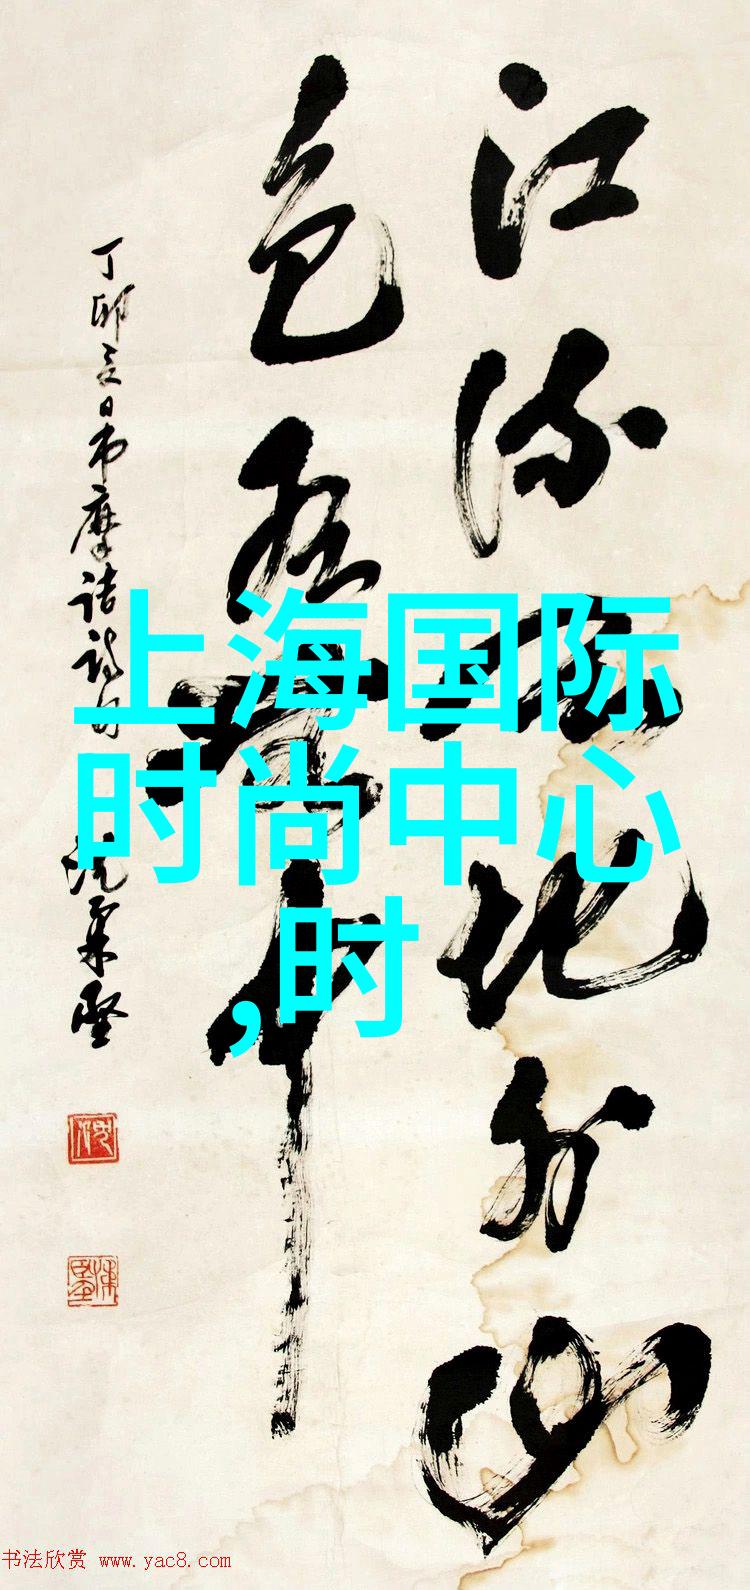 江流天地外山
色有無中
丁卯夏日书摩诘詩句
上海国际
时尚中心
,时
书法欣赏 www.yac8.com